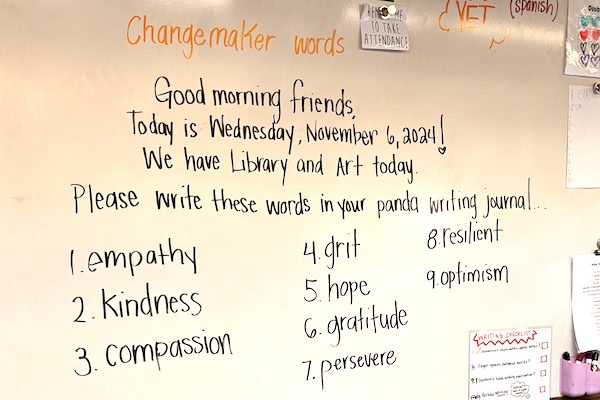 Changemaker words
TO TAKE
ATTENDANCE
YET
(spanish)
Good morning friends,
Today is Wednesday, November 6, 2024!
We have Library and Art today.
Please write these words in your panda writing journal...
1. empathy
2. Kindness
3. compassion
4. grit
5. hope
6. gratitude
7. persevere
8. resilient
9. optimism
WRITING CHECKLIST